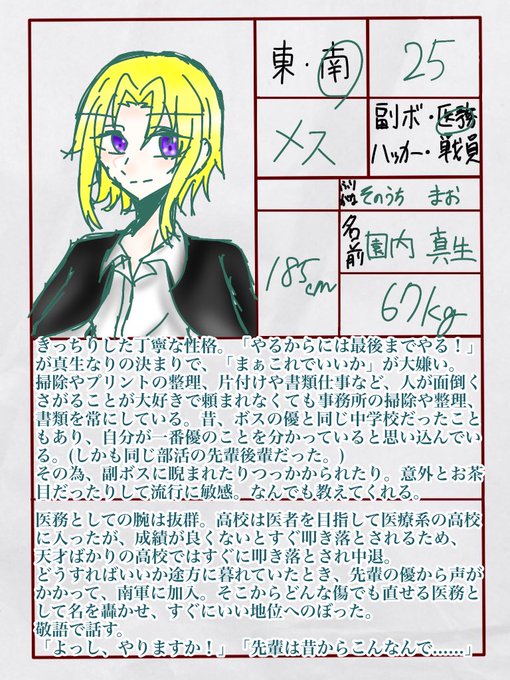 東・南
25
メス
副ボ・医務
ハッカー・戦員
そのうち まお
185cm
名前
園内 真生
67kg
きっちりした丁寧な性格。「やるからには最後までやる！」
が真生なりの決まりで、「まぁこれでいいか」が大嫌い。
掃除やプリントの整理、片付けや書類仕事など、人が面倒く
さがることが大好きで頼まれなくても事務所の掃除や整理、
書類を常にしている。昔、ボスの優と同じ中学校だったこと
もあり、自分が一番優のことを分かっていると思い込んでい
る。(しかも同じ部活の先輩後輩だった。)
その為、副ボスに睨まれたりつっかかられたり。意外とお茶
目だったりして流行に敏感。なんでも教えてくれる。
医務としての腕は抜群。高校は医者を目指して医療系の高校
に入ったが、成績が良くないとすぐ叩き落とされるため、
天才ばかりの高校ではすぐに叩き落とされ中退。
どうすればいいか途方に暮れていたとき、先輩の優から声が
かかって、南軍に加入。そこからどんな傷でも直せる医務と
して名を轟かせ、すぐにいい地位へのぼった。
敬語で話す。
「よっし、やりますか！」「先輩は昔からこんなんで......」